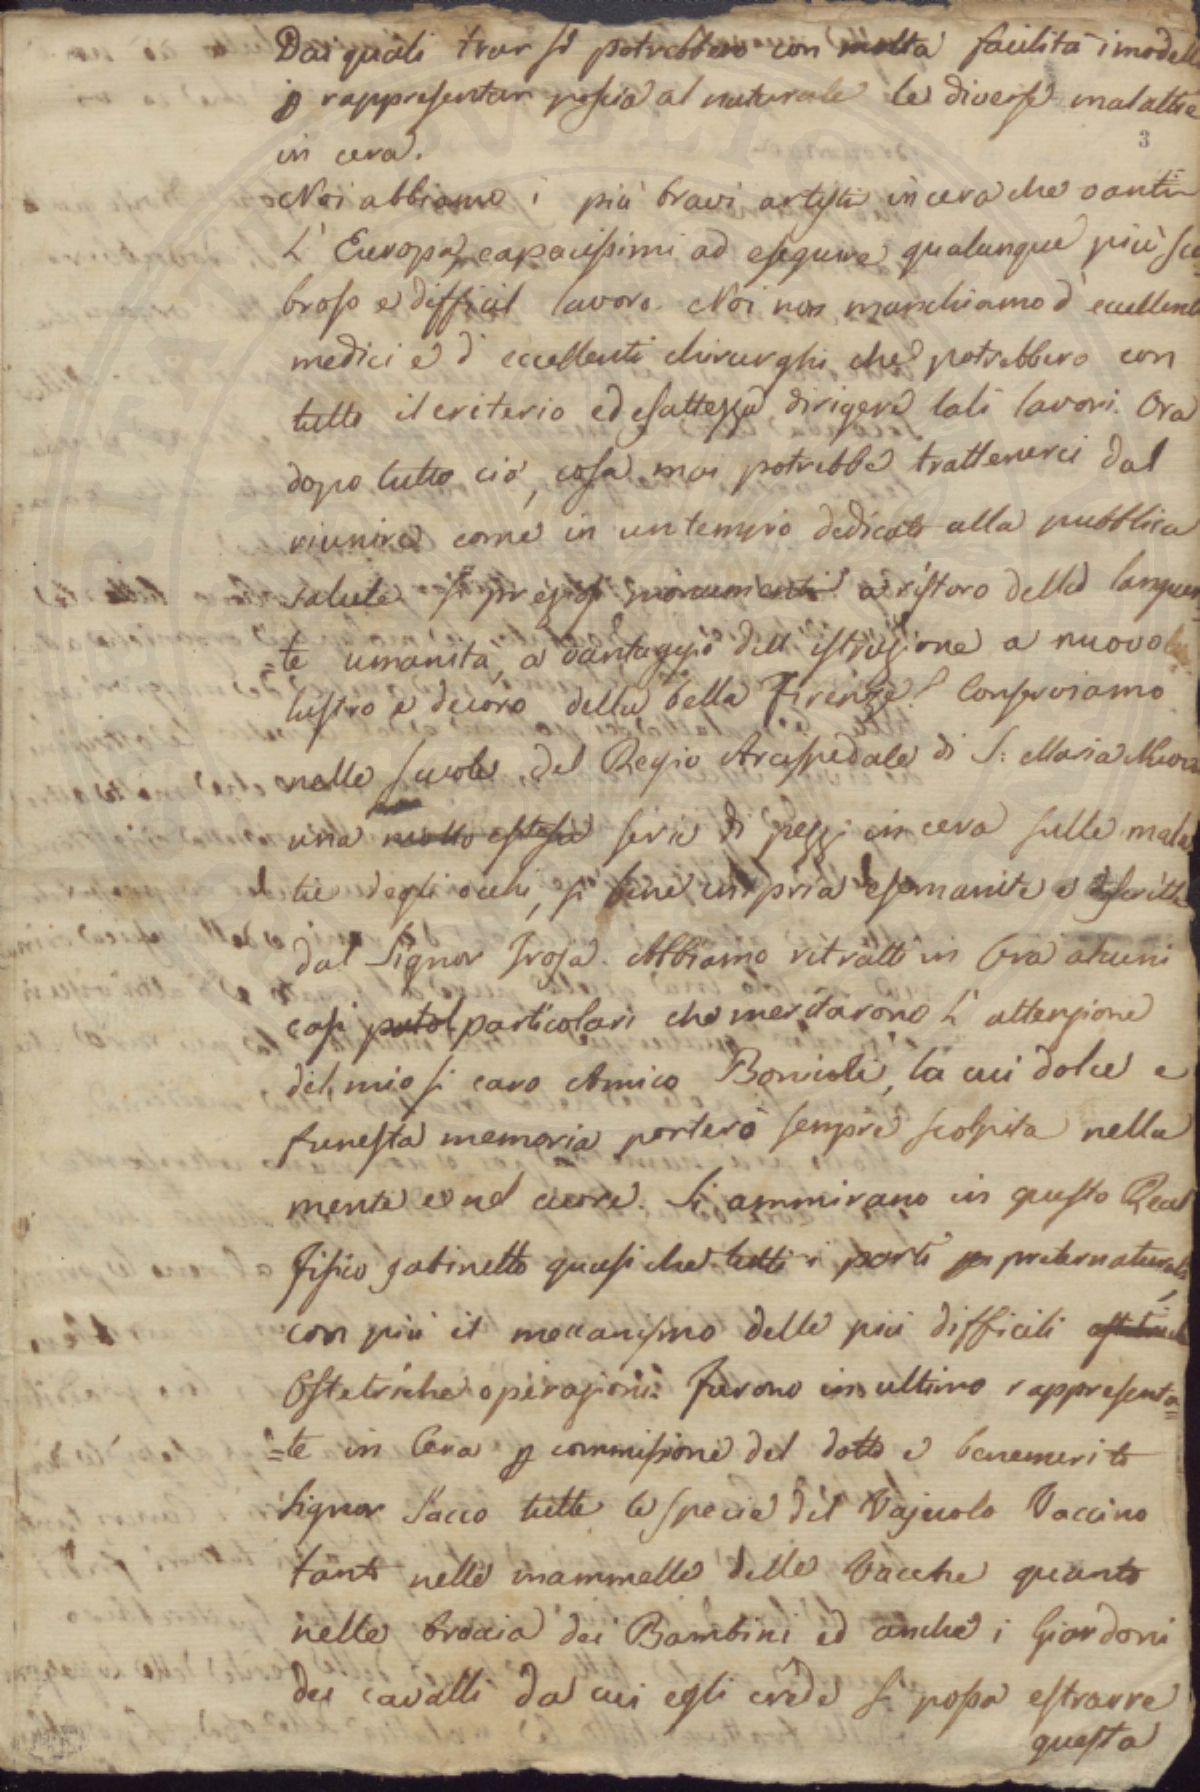 Dai quali trar si potrebbero con molta facilità i modelli
p rappresentar poscia al naturale le diverse malattie
3
in cera.
Noi abbiamo i più bravi artisti in cera che vanti
L' Europa, capacissimi ad eseguire qualunque più sca
broso e difficil lavoro. Noi non manchiamo d' eccellenti
medici e d' eccellenti chirurghi che potrebbero con
tutto il criterio ed esattezza dirigere tali lavori. Ora
dopo tutto ciò, cosa mai potrebbe trattenerci dal
riunire come in un tempio dedicato alla pubblica
salute sì preziosi monumenti a ristoro della languen
=te umanità, a vantaggio dell' istruzione a nuovo
lustro e decoro della bella Firenze? Conserviamo
nelle scuole del Regio Arcispedale di S: Maria Nuova
una molto estesa serie di pezzi in cera sulle malat
tie degli occhi, sì bene in pria esaminate e descritte
dal Signor Troja. Abbiamo ritratti in Cera alcuni
casi patol particolari che meritarono L' attenzione
del mio sì caro Amico Bonicoli, la cui dolce e
funesta memoria porterò sempre scolpita nella
mente e nel cuore. Si ammirano in questo Real
Fisico gabinetto quasi che tutti i parti preternaturali,
con più il meccanismo delle più difficili
Ostetriche operazioni. Furono in ultimo rappresenta=
=te in Cera p commissione del dotto e benemerito
Signor Sacco tutte le specie del Vajuolo Vaccino
tanto nelle mammelle delle Vacche quanto
nelle braccia dei Bambini ed anche i Giardoni
dei cavalli da cui egli crede si possa estrarre
questa